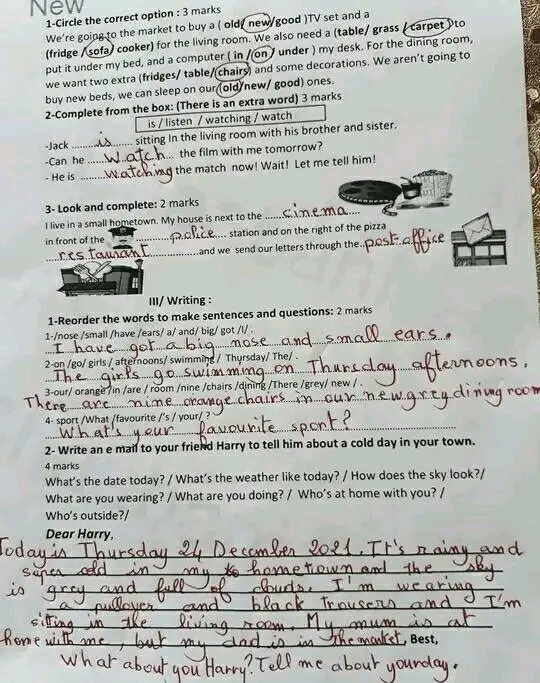 New
1-Circle the correct option : 3 marks
We're going to the market to buy a ( old/ new/good )TV set and a
(fridge /sofa/ cooker) for the living room. We also need a (table/ grass /carpet )to
put it under my bed, and a computer ( in /on / under ) my desk. For the dining room,
we want two extra (fridges/ table/chairs) and some decorations. We aren't going to
buy new beds, we can sleep on our(old/new/ good) ones.
2-Complete from the box: (There is an extra word) 3 marks
is / listen / watching / watch
-Jack ......is...... sitting In the living room with his brother and sister.
-Can he ...watch... the film with me tomorrow?
- He is ...watching the match now! Wait! Let me tell him!
3- Look and complete: 2 marks
I live in a small hometown. My house is next to the .....cinema....
in front of the ......police... station and on the right of the pizza
...restaurant..............and we send our letters through the..post-office
III/ Writing :
1-Reorder the words to make sentences and questions: 2 marks
1-/nose /small /have /ears/ a/ and/ big/ got /I/ .
I have got a big nose and small ears.
2-on /go/ girls / afternoons/ swimming/ Thursday/ The/ .
The girls go swimming on Thursday afternoons.
3-our/ orange /in /are / room /nine /chairs /dining /There /grey/ new / .
There are nine orange chairs in our new grey dining room
4- sport /What /favourite /'s / your/ ?
What's your favourite sport?
2- Write an e mail to your friend Harry to tell him about a cold day in your town.
4 marks
What's the date today? / What's the weather like today? / How does the sky look?/
What are you wearing? / What are you doing? / Who's at home with you? /
Who's outside?/
Dear Harry,
Today is Thursday 24 December 2021. It's rainy and
super cold in my hometown and the sky
is grey and full of clouds. I'm wearing
a pullover and black trousers and I'm
sitting in the living room. My mum is at
home with me, but my dad is in the market. Best,
What about you Harry? Tell me about yourday.